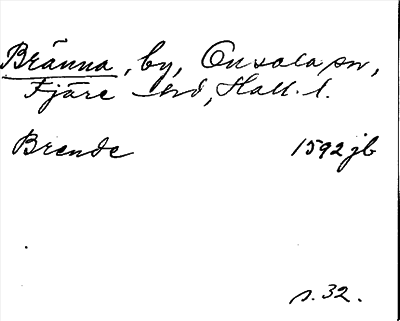 Bränna, by, Onsala sn,
Fjäre hd, Hall. l.
Brende 1592 jb
s. 32.